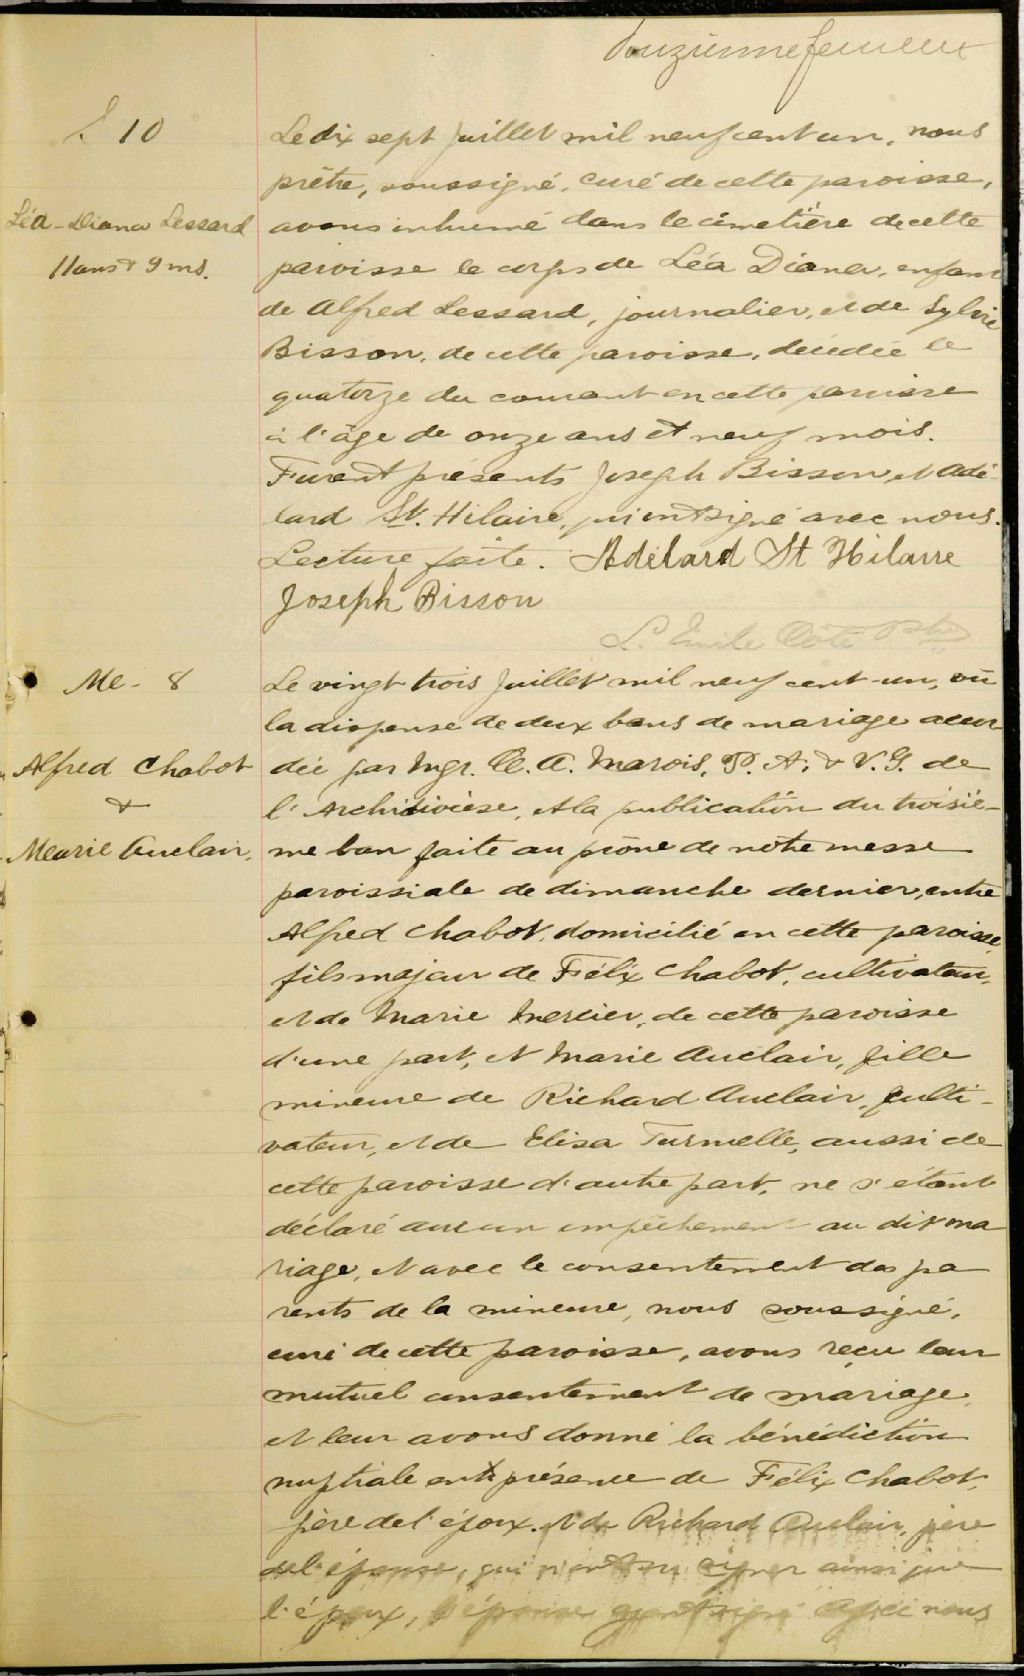 Douzième feuillet
S 10
Léa-Diana Lessard
11 ans & 9 ms.
Le dix sept Juillet mil neuf cent un, nous
prêtre, soussigné, curé de cette paroisse,
avons inhumé dans le cimetière de cette
paroisse le corps de Léa Diana, enfant
de Alfred Lessard, journalier, et de Sylvie
Bisson, de cette paroisse, décédée le
quatorze du courant en cette paroisse
à l'âge de onze ans et neuf mois.
Furent présents Joseph Bisson, et Adé-
lard St. Hilaire, qui ont signé avec nous.
Lecture faite. Adélard St Hilaire
Joseph Bisson
L. Emile Côté Ptre
Me - 8
Alfred Chabot
&
Marie Auclair.
Le vingt trois Juillet mil neuf cent-un, vû
la dispense de deux bans de mariage accor
dée par Mgr. C. A. Marois, P. A. & V. G. de
l'Archidiocèse, et la publication du troisiè-
me ban faite au prône de notre messe
paroissiale de dimanche dernier, entre
Alfred Chabot, domicilié en cette paroisse,
fils majeur de Félix Chabot, cultivateur,
et de Marie Mercier, de cette paroisse
d'une part, et Marie Auclair, fille
mineure de Richard Auclair, culti-
vateur, et de Elisa Turmelle, aussi de
cette paroisse d'autre part, ne s'étant
déclaré aucun empêchement au dit ma
riage, et avec le consentement des pa
rents de la mineure, nous soussigné,
curé de cette paroisse, avons reçu leur
mutuel consentement de mariage,
et leur avons donné la bénédiction
nuptiale en présence de Félix Chabot,
père de l'époux, et de Richard Auclair, père
de l'épouse, qui n'ont su signer ainsi que
l'époux, l'épouse ayant signé avec nous